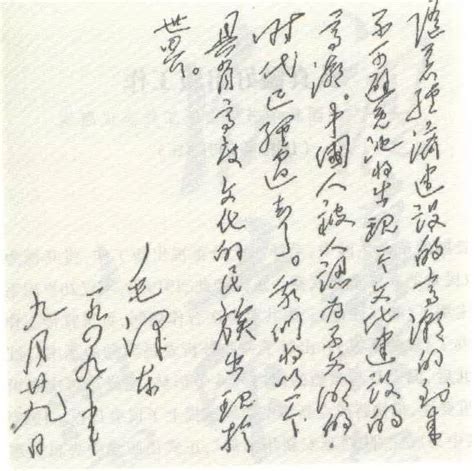 隨着經濟建設的高潮的到來
不可避免地将出現一个文化建設的
高潮。中國人被人認为不文明的
时代已經過去了。我們将以一个
具有高度文化的民族出現於
世界。
毛澤东
一九四九年
九月廿九日